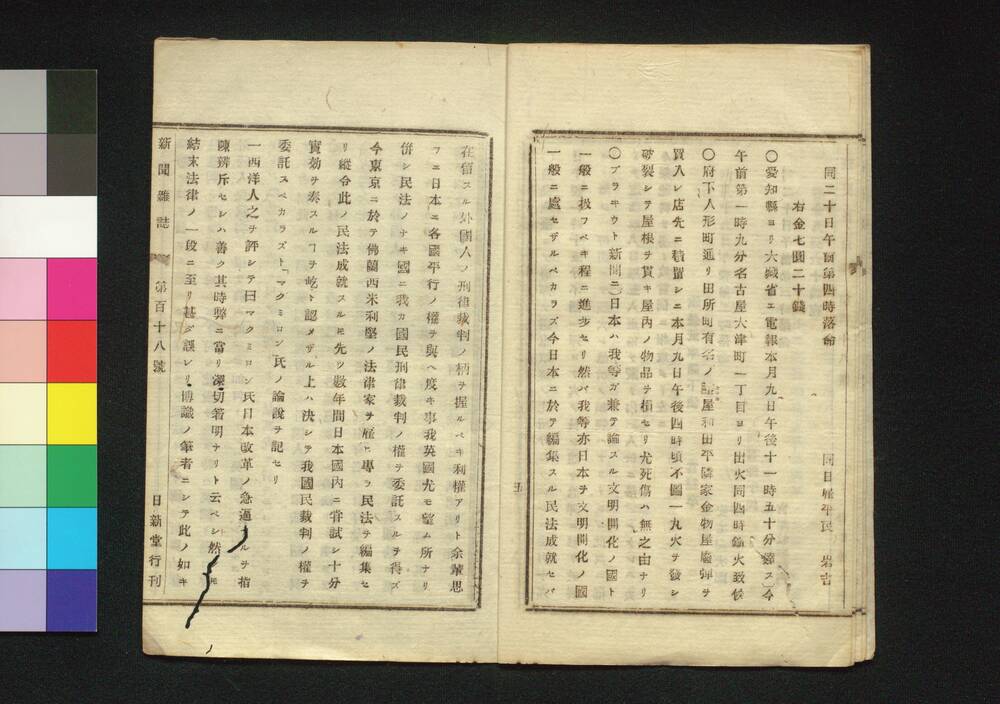 同二十日午前第四時落命 同日雇平民 岩吉
右金七圓二十錢
〇愛知縣ヨリ大藏省ェ電報本月九日午後十一時五十分發ス〕今
午前第一時九分名古屋大津町一丁目ヨリ出火同四時鎭火致候
〇府下人形町通リ田所町有名ノ 屋和田平隣家金物屋廢彈ヲ
買入レ店先ニ積置シニ本月九日午後四時頃不圖一丸火ヲ發シ
破裂シテ屋根ヲ貫キ屋内ノ物品ヲ損セリ尤死傷ハ無之由ナリ
〇ブラキウト新聞ニ〕日本ハ我等ガ兼テ論スル文明開化ノ國ト
一般ニ扱フベキ程ニ進歩セリ然バ我等亦日本ヲ文明開化ノ國
一般ニ處セザルベカラズ今日本ニ於テ編集スル民法成就セバ
五
在留スル外國人ノ刑律裁判ノ柄ヲ握ルベキ利權アリト余輩思
フニ日本ニ各國平行ノ權ヲ與ヘ度キ事我英國尤モ望ム所ナリ
併シ民法ノナキ國ニ我カ國民刑律裁判ノ權ヲ委託スルヲ得ズ
今東京ニ於テ佛蘭西米利堅ノ法律家ヲ雇ヒ專ラ民法ヲ編集セ
リ縱令此ノ民法成就スルモ先ツ數年間日本國内ニ甞試シ十分
實効ヲ奏スルヿヲ屹ト認メザル上ハ決シテ我國民裁判ノ權ヲ
委託スベカラズト「マクミロン」氏ノ論説ヲ記セリ
一西洋人之ヲ評シテ曰マクミロン氏日本改革ノ急過ナルヲ指
陳辨斥セシハ善ク其時弊ニ當リ深切著明ナリト云ベシ然レモ
結末法律ノ一段ニ至リ甚ダ誤レリ博識ノ筆者ニシテ此ノ如キ
新聞雜誌 第百十八號 日新堂行刊